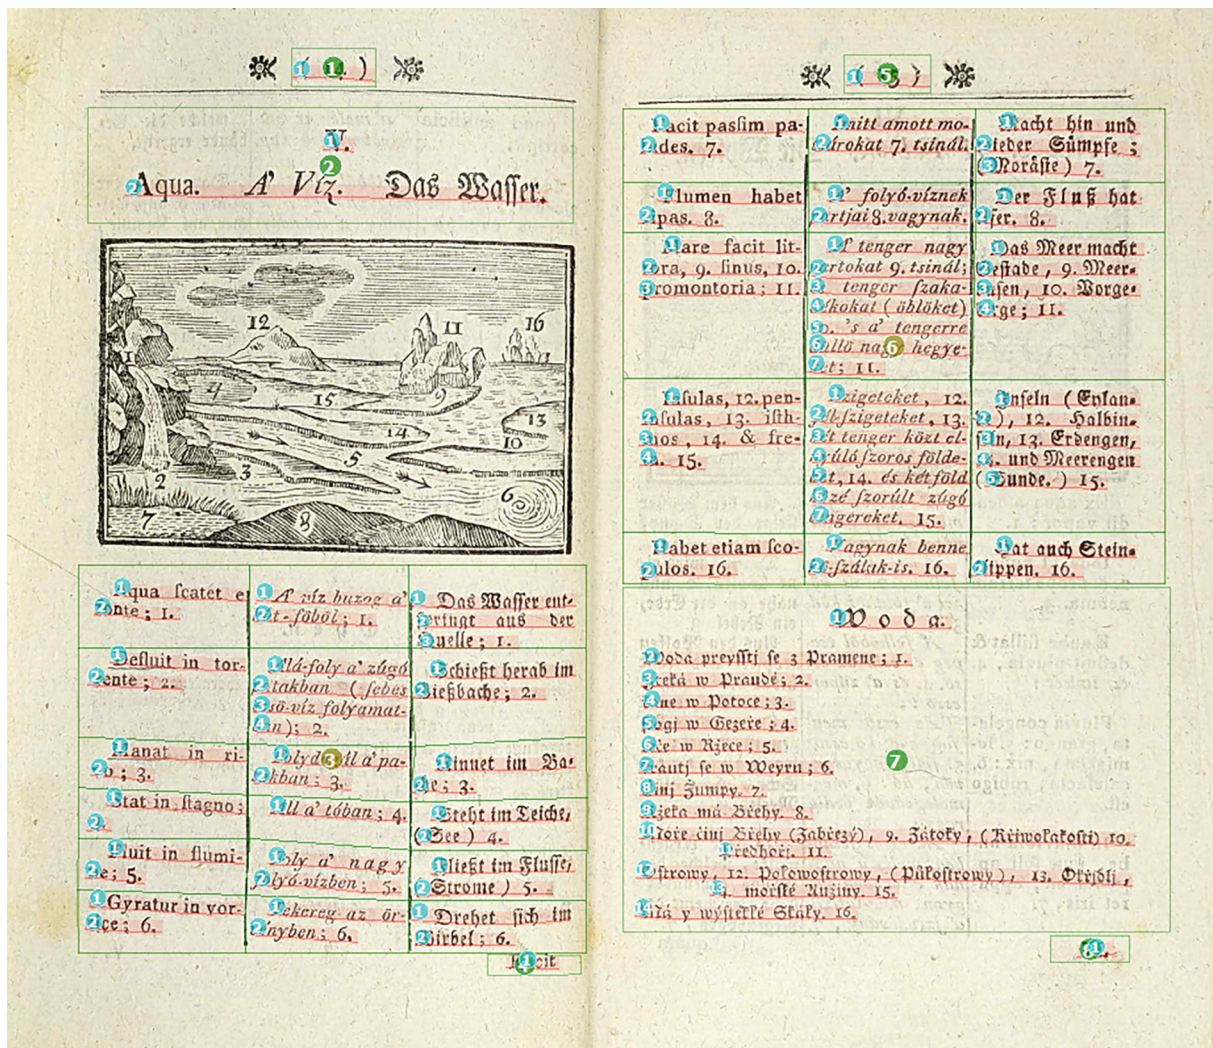 V.
Aqua. A' Víz. Das Wasser.
12
11
16
1
4
15
9
13
14
10
5
3
2
6
7
8
Aqua ſcatet e
fonte; 1.
A' víz buzog a'
kút-főből; 1.
Das Waſſer ent-
ſpringt aus der
Quelle; 1.
Defluit in tor-
rente; 2.
Alá-foly a' zúgó
patakban (ſebes
eſső-víz folyamat-
ban); 2.
Schießt herab im
Gießbache; 2.
Manat in ri-
vo; 3.
a' pa-
takban; 3.
Rinnet im Ba-
che; 3.
Stat in ſtagno;
4.
Áll a' tóban; 4.
Steht im Teiche,
(See) 4.
Fluit in flumi-
ne; 5.
Foly a' nagy
folyó-vízben; 5.
Fließt im Fluſſe,
(Strome) 5.
Gyratur in vor-
tice; 6.
Tekereg az ör-
vényben; 6.
Drehet ſich im
Wirbel; 6.
Facit
Facit paſſim pa-
ludes. 7.
amott mo-
tsárokat 7. tsinál.
Macht hin und
wieder Sümpfe;
(Moräſte) 7.
Flumen habet
ripas. 8.
A' folyó-víznek
partjai 8. vagynak.
Der Fluß hat
Ufer. 8.
Mare facit lit-
tora, 9. ſinus, 10.
promontoria; 11.
A' tenger nagy
partokat 9. tsinál;
tenger ſzaka-
(öblöket)
10. 's a' tengerre
nagy hegye-
ket; 11.
Das Meer macht
Geſtade, 9. Meer-
buſen, 10. Vorge-
birge; 11.
Inſulas, 12. pen-
inſulas, 13. iſth-
mos, 14. & fre-
ta. 15.
Szigeteket, 12.
fél-ſzigeteket, 13.
két tenger közt el-
nyúló ſzoros földe-
ket, 14. és két föld
közé ſzorúlt zúgó
tengereket. 15.
Inſeln (Eylan-
de), 12. Halbin-
ſeln, 13. Erdengen,
14. und Meerengen
(Sunde.) 15.
Habet etiam ſco-
pulos. 16.
Vagynak benne
kő-ſzálak-is. 16.
Hat auch Stein-
klippen. 16.
Woda.
Woda preyſſtj ſe z Pramene; 1.
Steká w Praudě; 2.
w Potoce; 3.
Stogj w Gezeře; 4.
Teče w Ržece; 5.
ſe w Weyru; 6.
Činj Žumpy. 7.
Ržeka má Břehy. 8.
Moře činj Břehy (Zabřezý), 9. Zátoky, (Křiwolakoſti) 10.
Předhořj. 11.
Oſtrowy, 12. Polowoſtrowy, (Půloſtrowy), 13. Okřjdlj,
14. mořſké Aužiny. 15.
Má y wýſtellé Skály. 16.